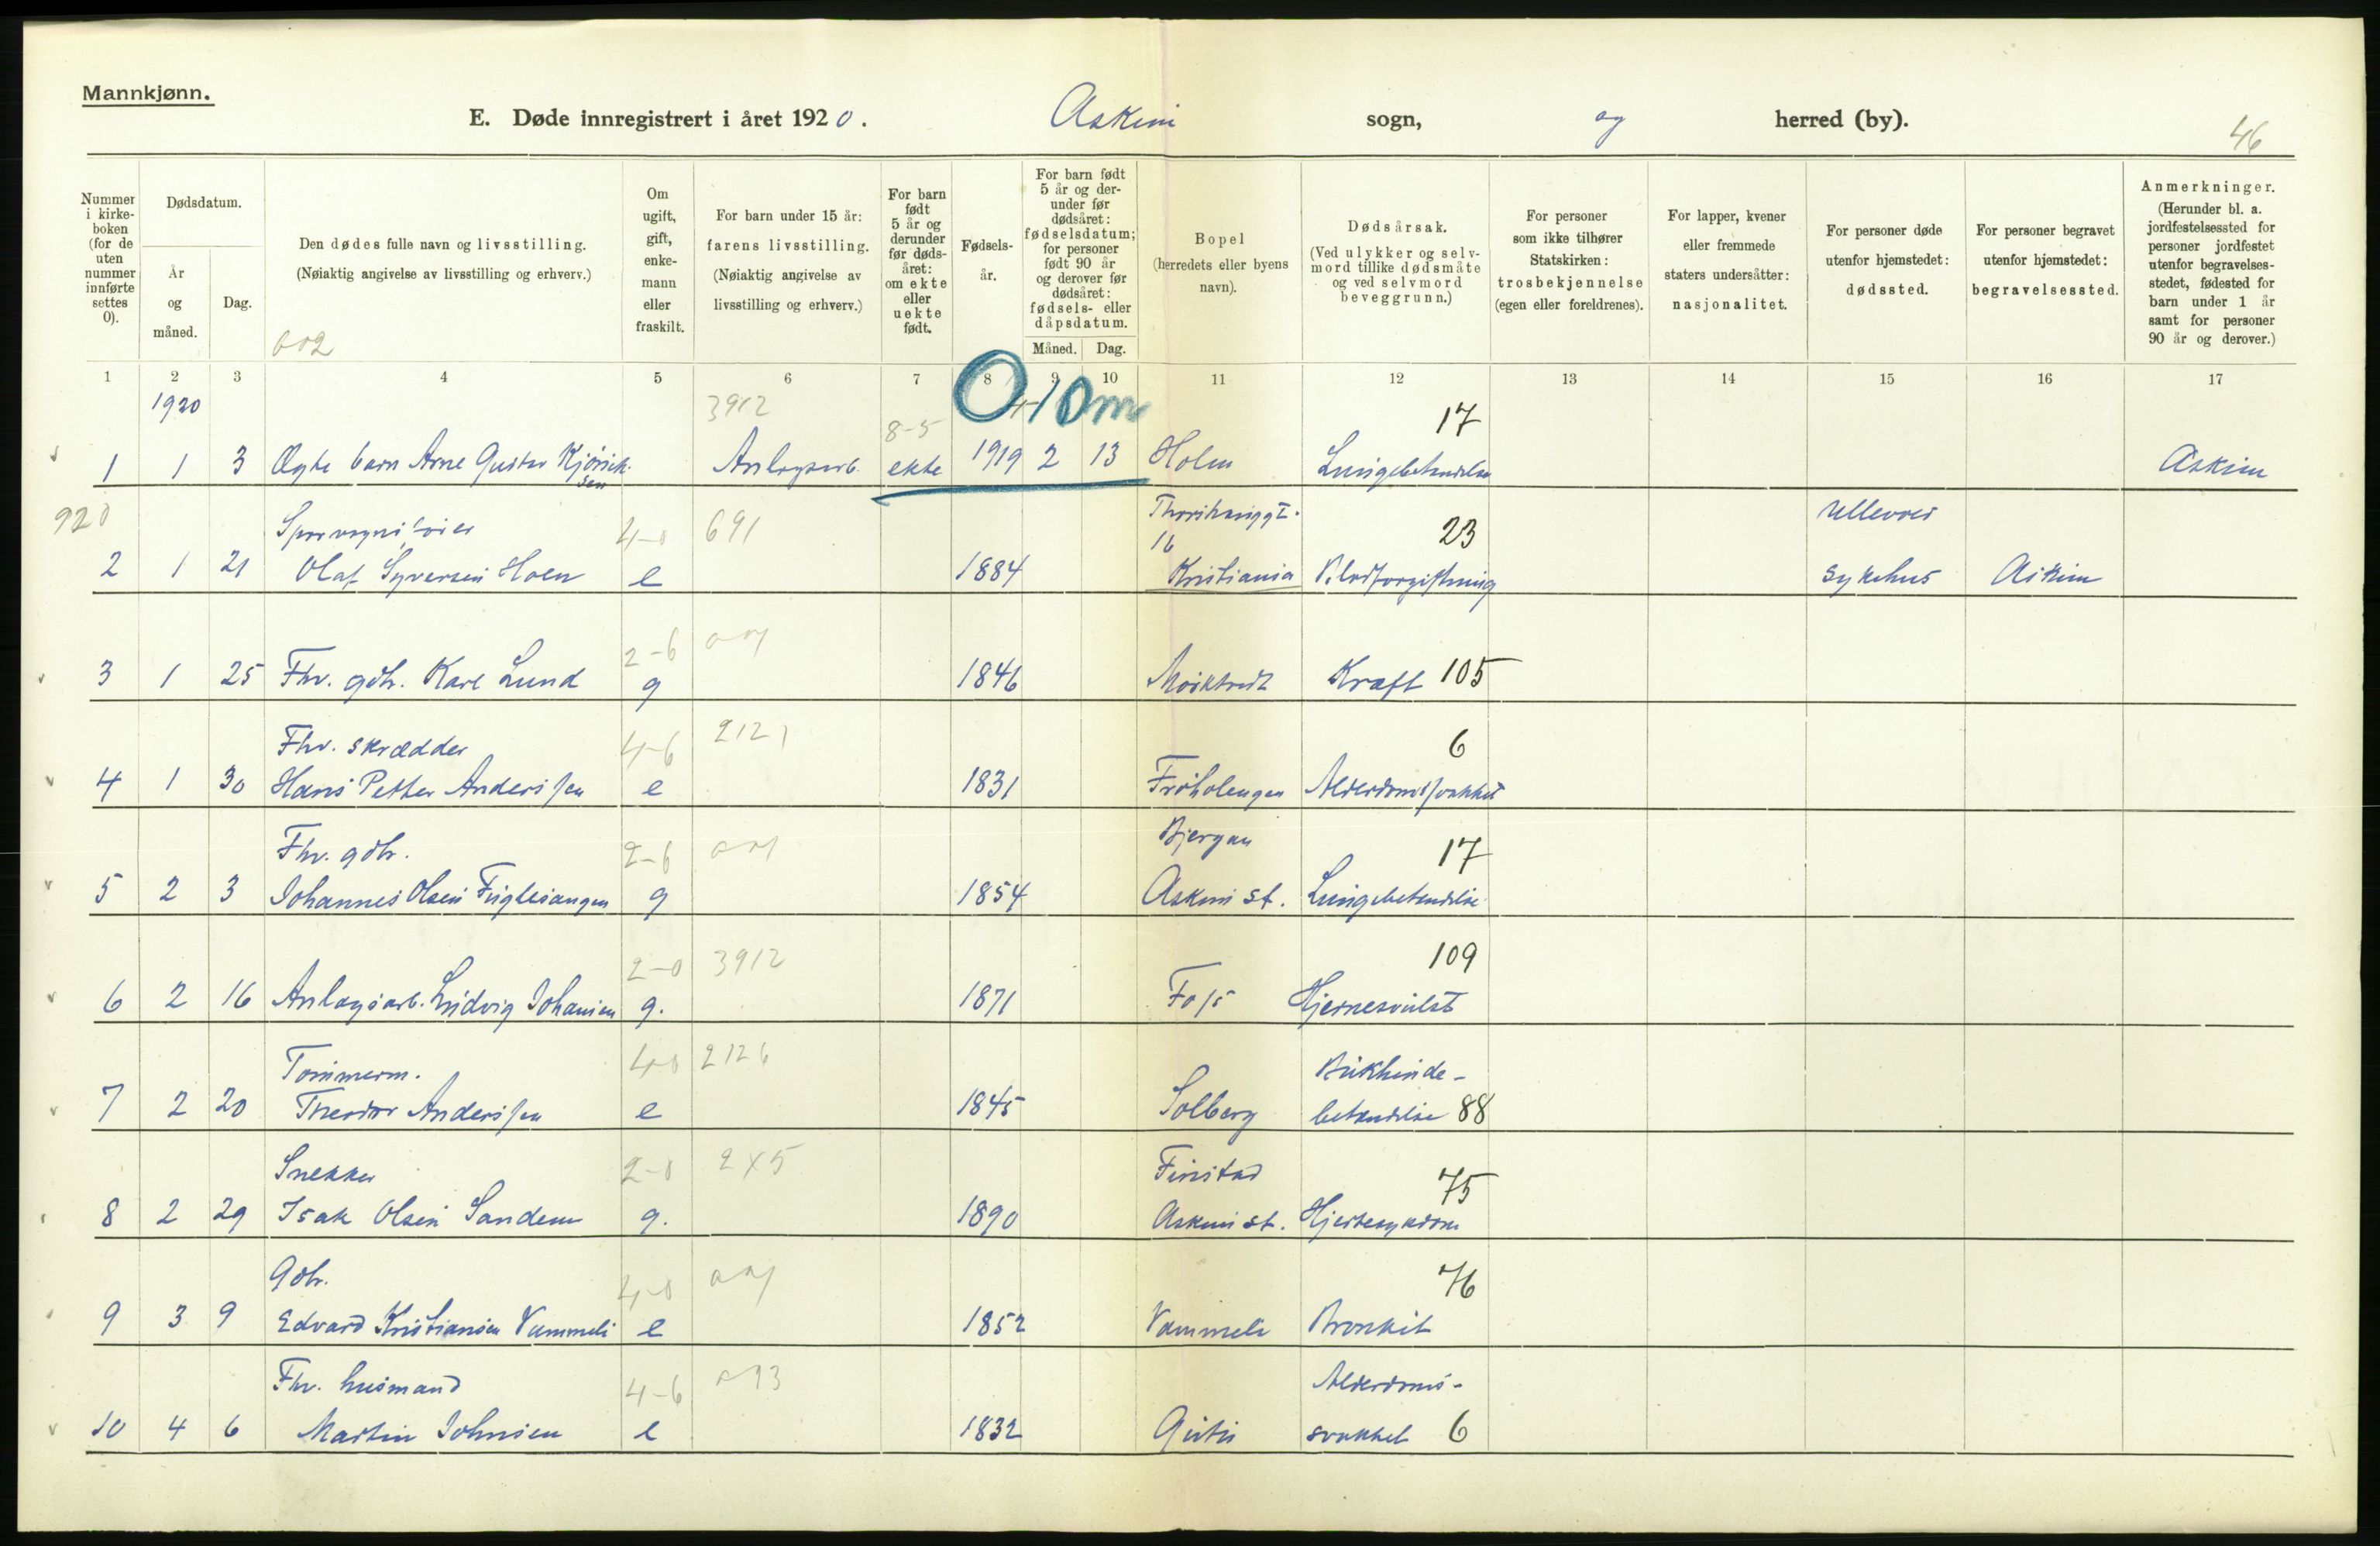 Mannkjønn.
E. Døde innregistrert i året 1920. Askim sogn, og herred (by).
46
Nummer i kirke-boken (for de uten nummer innførte settes 0).
Dødsdatum.
År og måned.
Dag.
Den dødes fulle navn og livsstilling.
(Nøiaktig angivelse av livsstilling og erhverv.)
Om ugift, gift, enke-mann eller fraskilt.
For barn under 15 år: farens livsstilling.
(Nøiaktig angivelse av livsstilling og erhverv.)
For barn født 5 år og derunder før døds-året: om ekte eller uekte født.
Fødsels-år.
For barn født 5 år og der-under før dødsåret: fødselsdatum; for personer født 90 år og derover før dødsåret: fødsels- eller dåpsdatum.
Måned. Dag.
Bopel
(herredets eller byens navn).
Dødsårsak.
(Ved ulykker og selv-mord tillike dødsmåte og ved selvmord beveggrunn.)
For personer som ikke tilhører Statskirken: trosbekjennelse (egen eller foreldrenes).
For lapper, kvener eller fremmede staters undersåtter: nasjonalitet.
For personer døde utenfor hjemstedet: dødssted.
For personer begravet utenfor hjemstedet: begravelsessted.
Anmerkninger.
(Herunder bl. a. jordfestelsessted for personer jordfestet utenfor begravelses-stedet, fødested for barn under 1 år samt for personer 90 år og derover.)
002
1 2 3 4 5 6 7 8 9 10 11 12 13 14 15 16 17
1920 3912 8-5 0-10m 17
1 1 3 Ægte barn Arne Gustav Kjøsick.sen Anlægsarb. ekte 1919 2 13 Holm Lungebetændelse Askim
920 Sporvognsfører 4-0 691 16 23 Ullevold
2 1 21 Olaf Syversen Holm e 1884 Kristiania Blodforgiftning sykehus Askim
2-6
3 1 25 Fhv. gdbr. Karl Lund g 1846 Kraft 105
Fhv. skrædder 4-6 2121 6
4 1 30 Hans Petter Anderssen e 1831 Frøholengen Alderdomssvakhet
Fhv. gdbr. 2-6 Bjergan 17
5 2 3 Johannes Olsen Fuglesangen g 1854 Askim st. Lungebetændelse
2-0 3912 109
6 2 16 Anlægsarb. Ludvig Johansen g. 1871 Foss Hjernesvulst
Tømmerm. 4-0 2126 Bukhinde-
7 2 20 Theodor Anderssen e 1845 Solberg betændelse 88
Snekker 2-0 2x5 Finstad 75
8 2 29 Isak Olsen Sandem g. 1890 Askim st. Hjertesykdom
Gdbr. 4-0 76
9 3 9 Edvard Kristiansen Vammeli e 1852 Vammeli Bronkit
Fhv. husmand 4-6 Alderdoms-
10 4 6 Martin Johnsen e 1832 svakhet 6